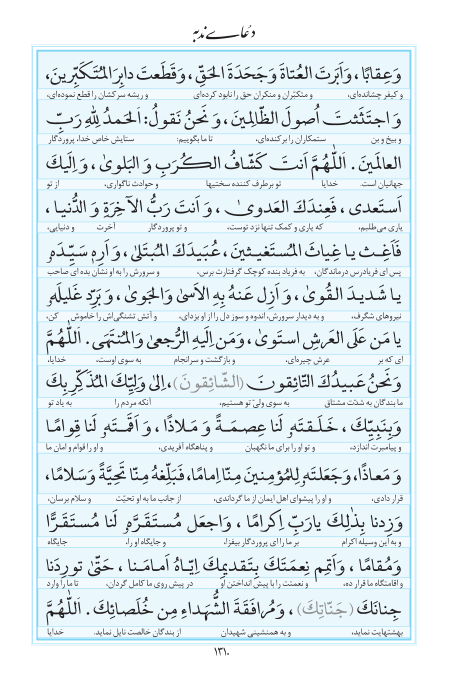 دعاے ندبه
وَعِقابًا ، وَاَبَرتَ العُتاةَ وَجَحَدَةَ الحَقِّ ، وَقَطَعتَ دابِرَ المُتَكَبِّرينَ،
و کیفر چشانده‌ای، و متکبّران و منکران حق را نابود کرده‌ای و ریشه سرکشان را قطع نموده‌ای،
وَ اجتَثَثتَ اُصولَ الظّالِمينَ ، وَ نَحنُ نَقولُ: اَلحَمدُ لِلهِ رَبِّ
و بیخ و بن ستمکاران را برکنده‌ای، تا ما بگوییم: ستایش خاص خدا، پروردگار
العالَمينَ . اَللّٰهُمَّ اَنتَ كَشّافُ الكُرَبِ وَ البَلوىٰ ، وَ اِلَيكَ
جهانیان است. خدایا تو برطرف کننده سختیها و حوادث ناگواری، از تو
اَستَعدى ، فَعِندَكَ العَدوىٰ ، وَ اَنتَ رَبُّ الآخِرَةِ وَ الدُّنيا ،
یاری می‌طلبم، که یاری و کمک تنها نزد توست، و تو پروردگار آخرت و دنیایی،
فَاَغِث يا غِياثَ المُستَغيثينَ ، عُبَيدَكَ المُبتَلىٰ ، وَ اَرِهِ سَيِّدَهُ
پس ای فریادرس درماندگان، به فریاد بنده کوچک گرفتارت برس، و سرورش را به او نشان بده ای صاحب
يا شَديدَ القُوىٰ ، وَ اَزِل عَنهُ بِهِ الاَسىٰ وَ الجَوىٰ ، وَ بَرِّد غَليلَهُ
نیروهای شگرف، و به دیدار سرورش، اندوه و سوز دل را از او بزدای، و آتش تشنگی‌اش را خاموش کن،
يا مَن عَلَى العَرشِ استَوىٰ ، وَمَن اِلَيهِ الرُّجعىٰ وَالمُنتَهىٰ . اَللّٰهُمَّ
ای که بر عرش چیره‌ای، و بازگشت و سرانجام به سوی اوست، خدایا،
وَنَحنُ عَبيدُكَ التّائِقونَ (الشّائِقونَ) ، اِلىٰ وَلِيِّكَ المُذَكِّرِ بِكَ
ما بندگان به شدّت مشتاق به سوی ولیّ تو هستیم، آنکه مردم را به یاد تو
وَبِنَبِيِّكَ ، خَلَقتَهُ لَنا عِصمَةً وَ مَلاذًا ، وَ اَقَمتَهُ لَنا قِوامًا
و پیامبرت اندازد، و تو او را برای ما نگهبان و پناهگاه آفریدی، و او را قوام و امان ما
وَ مَعاذًا، وَجَعَلتَهُ لِلمُؤمِنينَ مِنّا اِمامًا، فَبَلِّغهُ مِنّا تَحِيَّةً وَسَلامًا،
قرار دادی، و او را پیشوای اهل ایمان از ما گرداندی، از جانب ما به او تحیّت و سلام برسان،
وَزِدنا بِذٰلِكَ يارَبِّ اِكرامًا ، وَاجعَل مُستَقَرَّهُ لَنا مُستَقَرًّا
و به این وسیله اکرام بر ما را ای پروردگار بیفزا، و جایگاه او را، جایگاه
وَ مُقامًا ، وَاَتمِم نِعمَتَكَ بِتَقديمِكَ اِيّاهُ اَمامَنا ، حَتّىٰ تورِدَنا
و اقامتگاه ما قرار ده، و نعمتت را با پیش انداختن او در پیش روی ما کامل گردان، تا ما را وارد
جِنانَكَ (جَنّاتِكَ) ، وَ مُرافَقَةَ الشُّهَداءِ مِن خُلَصائِكَ . اَللّٰهُمَّ
بهشتهایت نماید، و به همنشینی شهیدان از بندگان خالصت نایل نماید. خدایا
۱۳۱۰